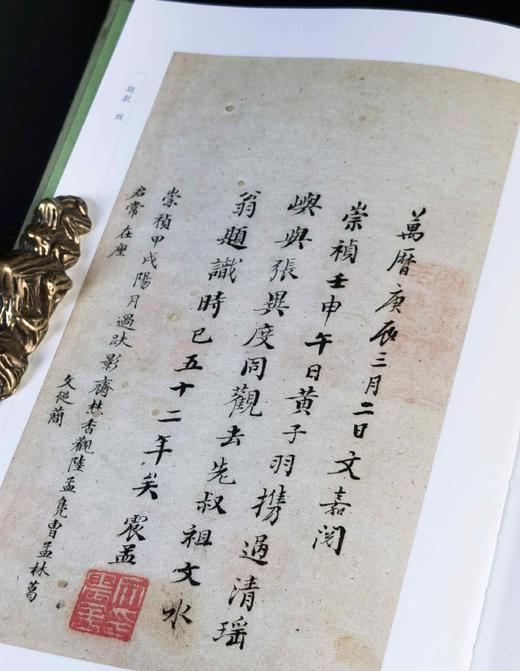 萬曆庚辰三月二日文嘉閱
崇禎壬申午日黃子羽攜過清瑤
嶼與張異度同觀去先叔祖文水
翁題識時已五十二年矣 震孟
崇禎甲戌陽月過趺影齋林香觀陸孟鳧曹孟林葛
君常在座
文從簡
題款 跋